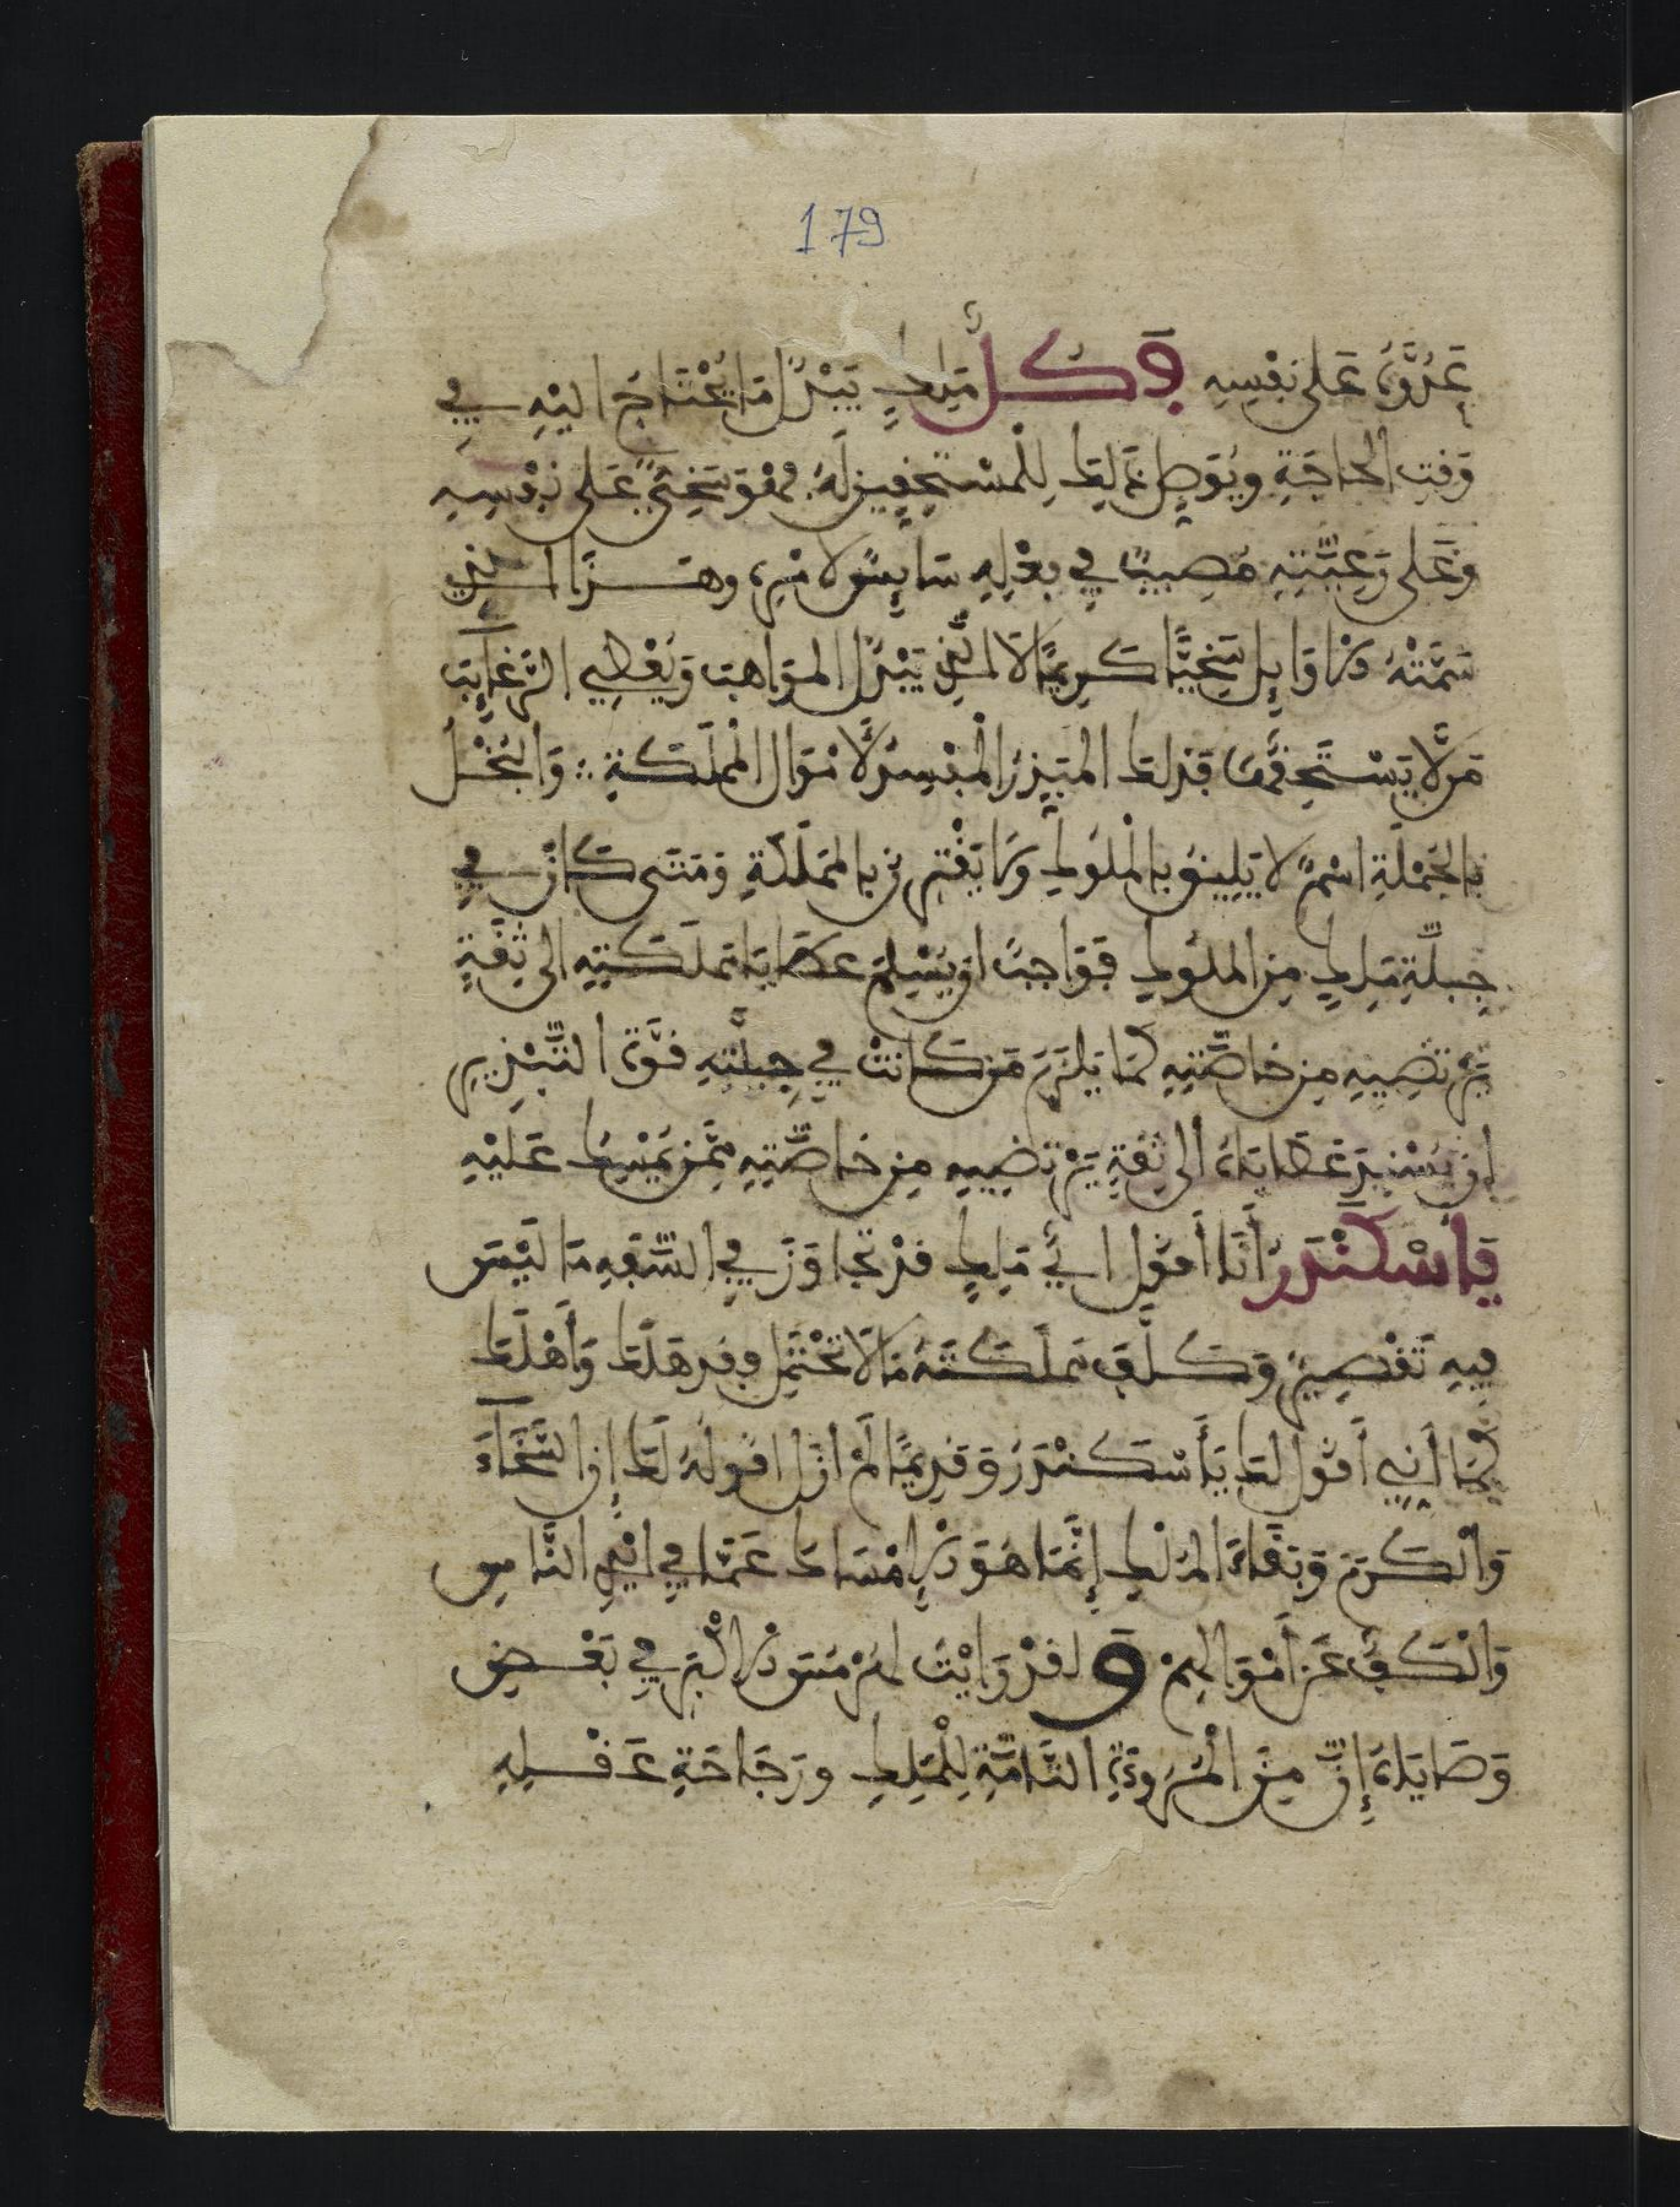 179
عَدُوُّهُ عَلى نفْسِهِ وَكُلُّ مَلِكٍ يَبْذُل مَا يُحْتَاجُ اليْهِ فِي
وَقتِ الحَاجَةِ ويُوَصِل ذَلِكَ لِلْمُسْتَحِقِينَ لَهُ فَهُوَ سَخِيٌّ عَلى نَفْسِهِ
وَعَلى رَعِيَّتِهِ مُصِيبٌ في فِعْلِهِ سَايِسٌ لامْرِهِ وهَذَا الذِي
سَمَّتْهُ الاوَايِل سَخِيًّا كَرِيمًا لا الَّذِي يَبْذُل المَوَاهِبَ وَيُعْطِي الرَّغَايِبَ
مَن لَّا يَسْتَحِقُّهَا فَذَلكَ المُبَذِرُ الْمُفْسِدُ لَامْوَال الْمَمْلَكَةِ ؞ وَالبُخْلُ
بالجُمْلَةِ اسْمٌ لا يَلِيقُ بالْمُلُوكِ وَلا يَقْتَرِن بالمَمْلَكَةِ وَمَتَى كَانَ فِي
جِبِلَّةِ مَلِكٍ مِنَ المُلُوكِ فَوَاجِبٌ ان يُسْلِمَ عَطَايَا مَمْلَكَتِهِ الى ثِقَةٍ
يَرْتَضِيهِ مِن خَاصَّتِهِ كَمَا يَلْزَمُ مَن كَانَتْ فِي جِبِلَّتِهِ قُوَّةُ التَّبْذِيرِ
ان يُسْنِدَ عَطَايَاهُ الى ثِقَةٍ يَرْتَضِيهِ مِن خَاصَّتِهِ مِمَّن يُمْسِكُ عَلَيْهِ
يَا أَسْكَنْدَرُ أَنَا أَقول ايُّ مَلِكٍ قَدْ تَجَاوَزَ فِي السَّفَهِ مَا ليْسَ
فِيهِ تَقْصِيرٌ وَكَلَّفَ مَمْلَكَتَهُ مَا لَا تَحْتَمِل وفقد هَلَكَ وَأَهْلَكَ
كَمَا أَنِي أَقُول لكَ يَا أَسْكَنْدَرُ وَقَدِيمًا لَمْ ازَل اقُولهُ لَكَ إِن السَّخَآءَ
وَالْكَرَمَ وَبَقَاءَ المُلْكِ إِنَّمَا هُوَ الامْسَاكُ عَمَّا فِي ايْدِ النَّاسِ
وَالْكَفُّ عَن أَمْوَالِهِمْ وَلَقَدْ رَايْتُ لهُرْمُسَ الاكْبَر فِي بَعْضِ
وَصَايَاهُ إِنَّ مِنَ الْمُرُوءَةِ التَّامَّةِ لِلْمَلِكِ ورَجَاحَةِ عَقْلِهِ